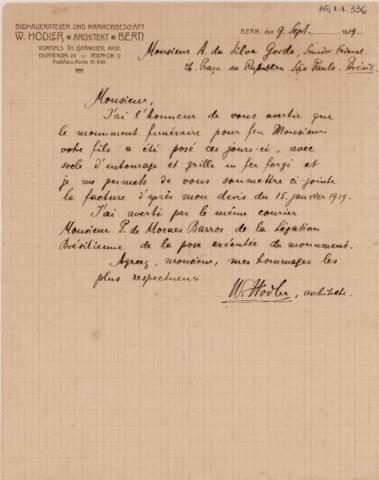 AG.1.1.336
BILDHAUERATELIER UND MARMORGESCHÄFT
W. HODLER ARCHITEKT BERN
VORMALS TH. GRÄNICHER, ARCH.
TELEPHON 12
BERN, den 9. Sept. 1919.
Monsieur A. da Silva Gordo, Senador Federal
26. Praça da Republica São Paulo. Brésil.
Monsieur,
J'ai l'honneur de vous avertir que
le monument funéraire pour feu Monsieur
votre fils a été posé ces jours-ci, avec
socle d'entourage et grille en fer forgé et
je me permets de vous soumettre ci-jointe
la facture d'après mon devis du 15. janvier 1919.
J'ai averti par le même courier
Monsieur P. de Moraes Barros de la Légation
Brésilienne de la pose exécutée du monument.
Agreez, monsieur, mes hommages les
plus respectueux
W. Hodler, architecte.